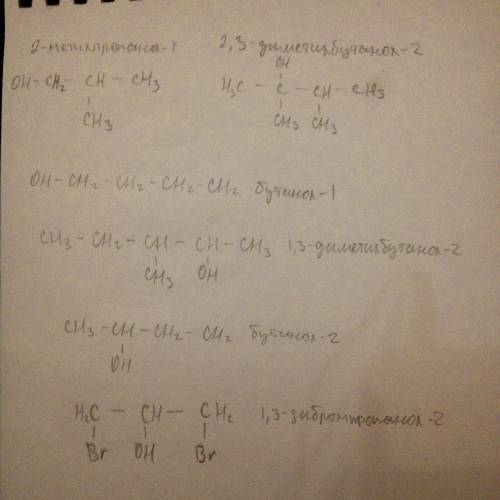 2-метилпропанол-1
OH - CH2 - CH - CH3
CH3
2,3-диметилбутанол-2
OH
H3C - C - CH - CH3
CH3 CH3
OH - CH2 - CH2 - CH2 - CH2 бутанол-1
CH3 - CH2 - CH - CH - CH3 1,3-диметилбутанол-2
CH3 OH
CH3 - CH - CH2 - CH2 бутанол-2
OH
H2C - CH - CH2 1,3-дибромпропанол-2
Br OH Br